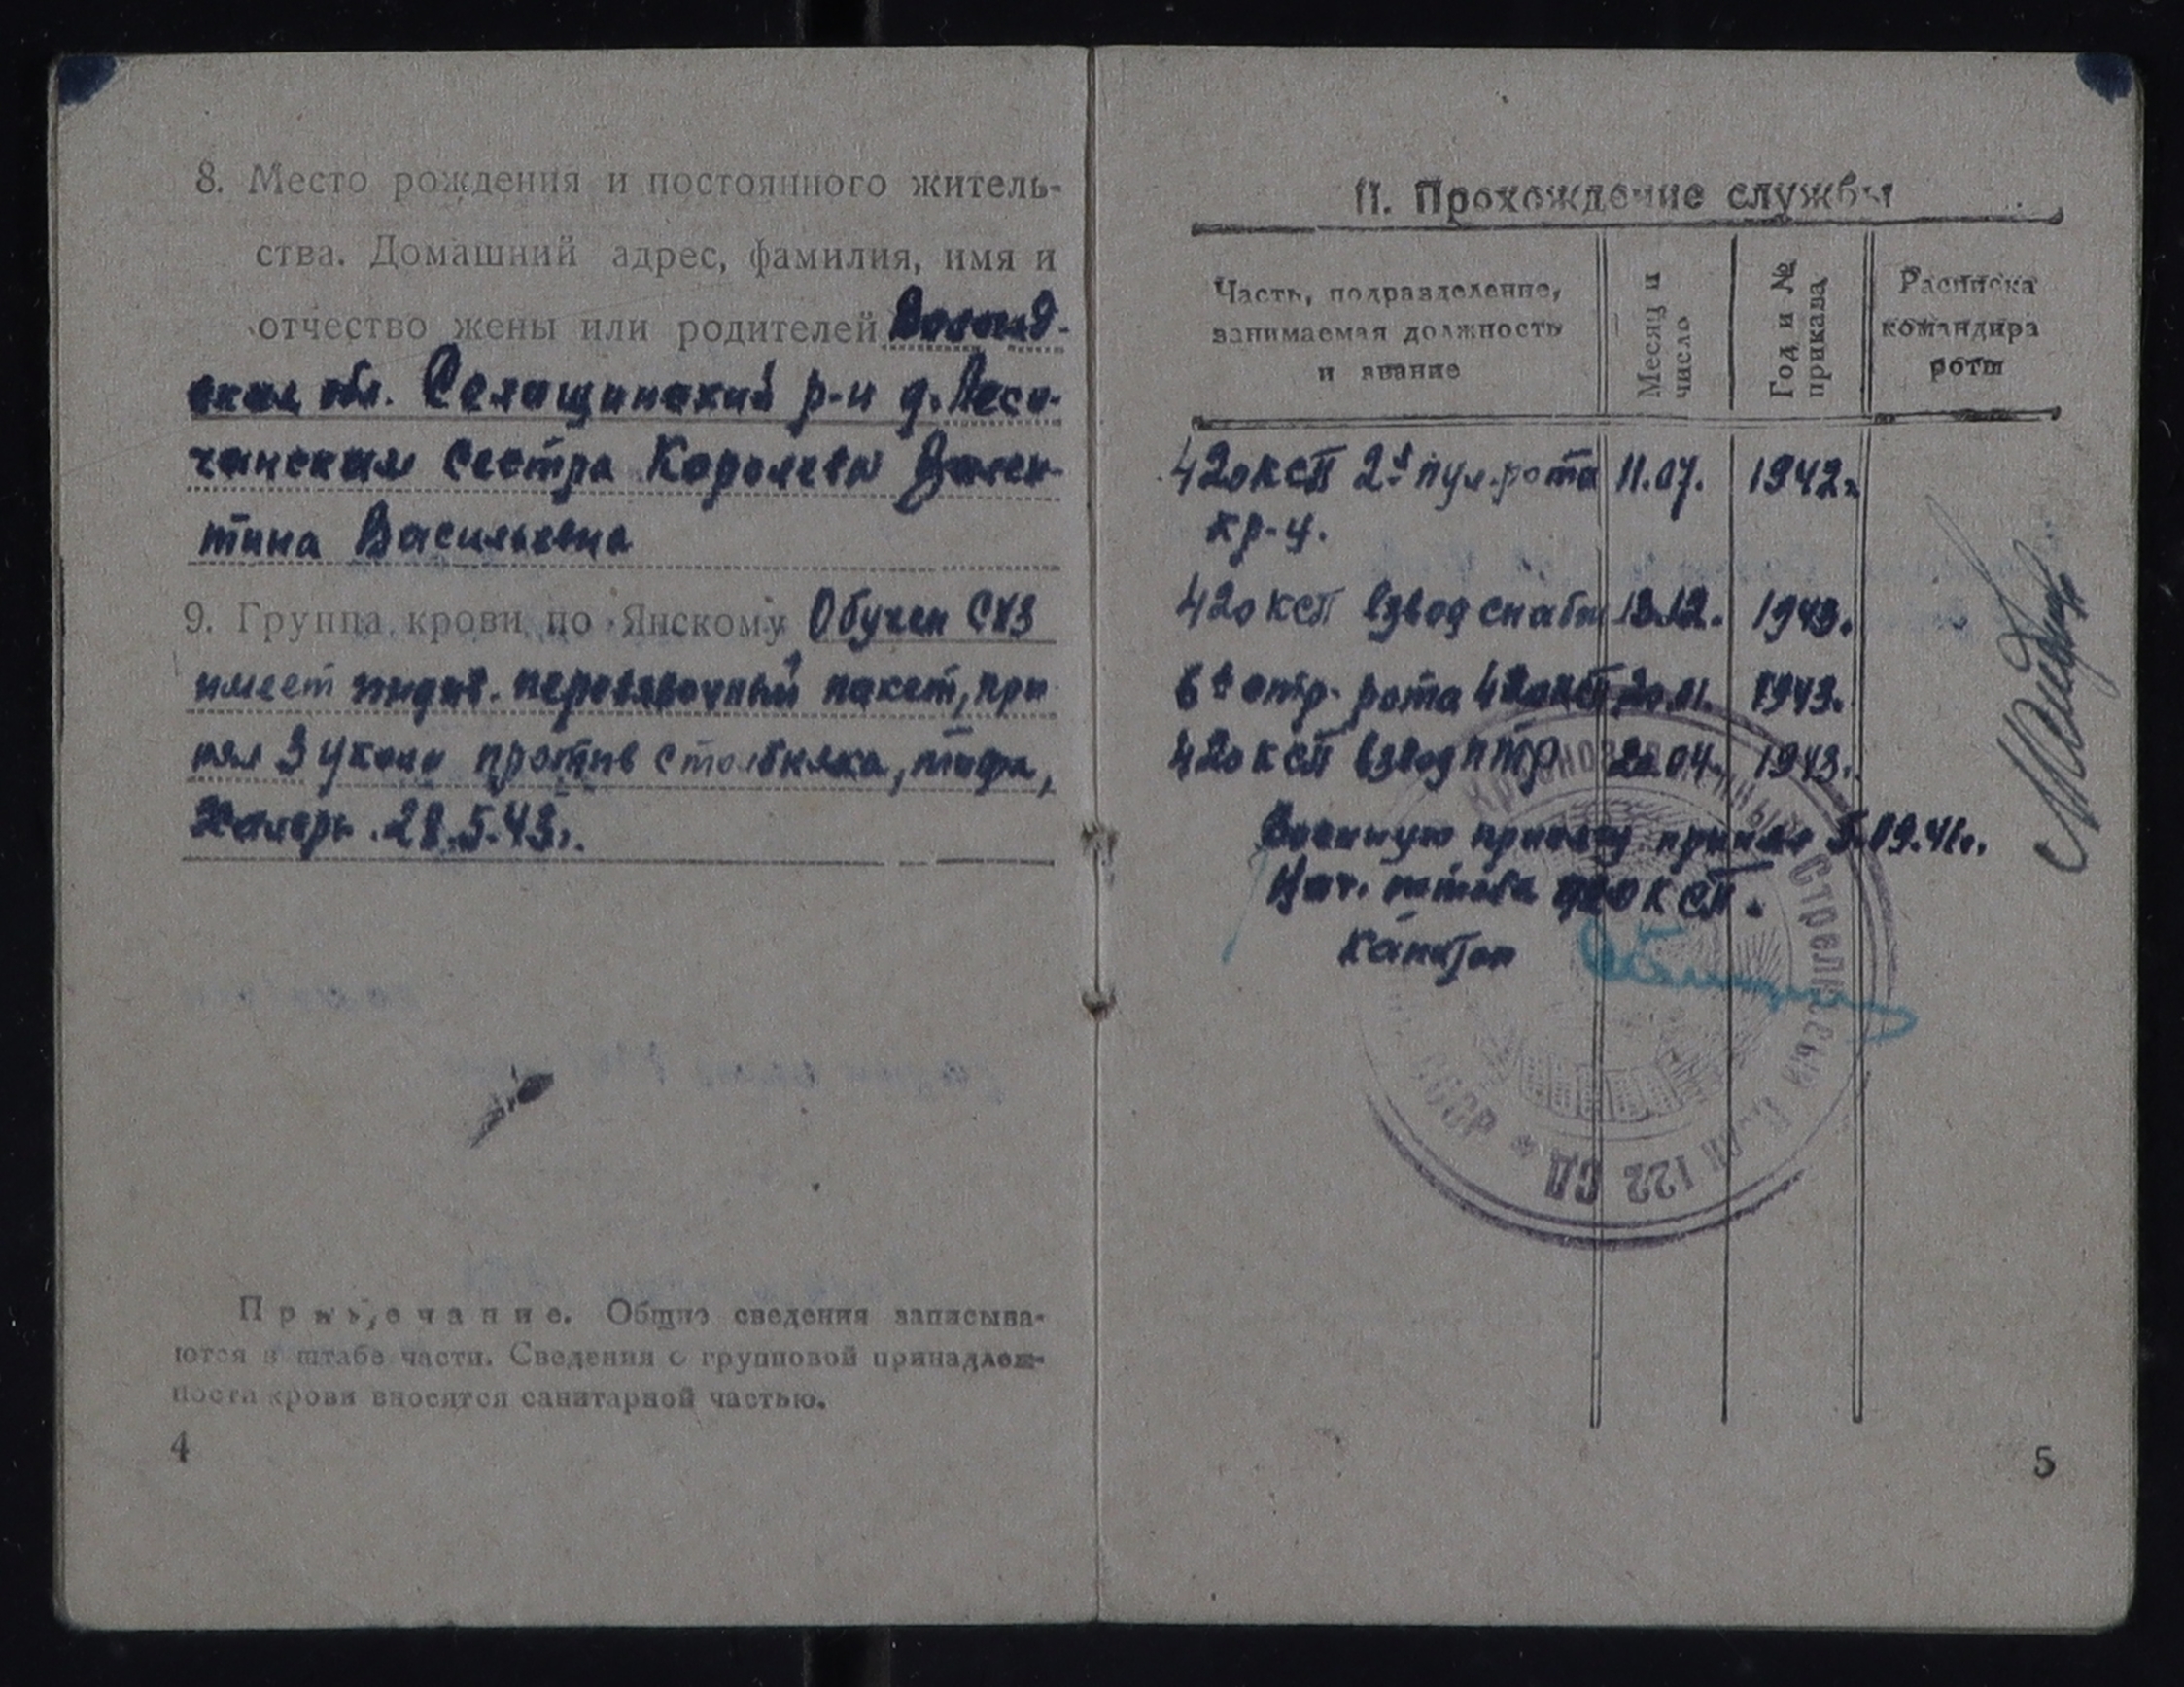 8. Место рождения и постоянного житель-
ства. Домашний адрес, фамилия, имя и
отчество жены или родителей Волог-
ская обл. р-н д. Песо-
чинская сестра Королева Вален-
тина Васильевна
9. Группа крови по Янскому Обучен СХЗ
имеет индив. перевязочный пакет, при
нял 3 укола против столбняка, тифа,
28.5.43г.
Примечание. Общие сведения записыва-
ются в штабе части. Сведения о групповой принадлеж-
ности крови вносятся санитарной частью.
4
II. Прохождение службы
Часть, подразделение,
занимаемая должность
и звание
Месяц и
число
Год и №
приказа
Расписка
командира
роты
420 КСП 2я пул. рота 11.07. 1942г
кр-ц.
420 КСП взвод снабж 13.12. 1943.
6я стр. рота 420 КСП 20.01. 1943.
420 КСП взвод ПТР 20.04. 1943.
Военную присягу принял 5.09.41г.
Нач. штаба 420 КСП.
Капитан
Краснознаменный Стрелковый 122 СД * СССР
5